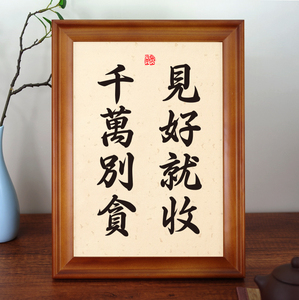 見好就收
千萬別貪